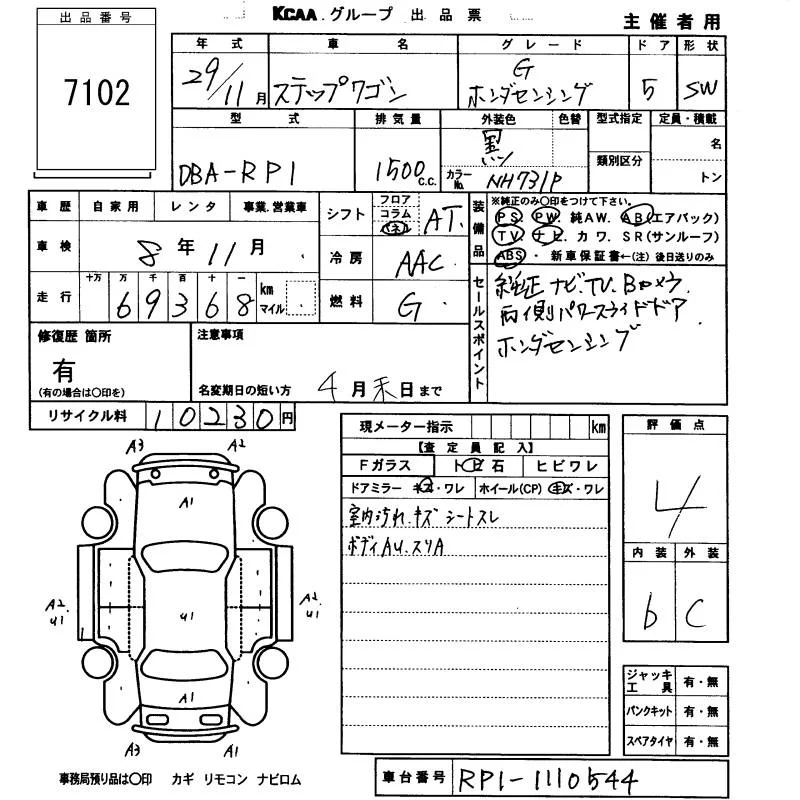 KCAA グループ 出品票
主催者用
出品番号
7102
年式 車名 グレード ドア 形状
29/11月 ステップワゴン G ホンダセンシング 5 SW
型式 排気量 外装色 色替 型式指定 定員・積載
DBA-RP1 1500c.c. 黒 カラーNo. NH731P 類別区分 名 トン
車歴 自家用 レンタ 事業.営業車
車検 8年11月
走行 十万 万 千 百 十 一
69368 km マイル
シフト フロア コラム パネル AT
冷房 AAC
燃料 G
装備品
※純正のみ○印をつけて下さい。
PS. PW. 純AW. AB(エアバック)
TV. ナビ. カワ. SR(サンルーフ)
ABS. 新車保証書←(注)後日送りのみ
セールスポイント
純正ナビ.TV.Bカメラ.
両側パワースライドドア
ホンダセンシング
修復歴 箇所
有
(有の場合は○印を)
注意事項
名変期日の短い方 4月末日まで
リサイクル料 10230円
現メーター指示 km
【査定員記入】
Fガラス トビ石 ヒビワレ
ドアミラー キズ・ワレ ホイール(CP) キズ・ワレ
室内汚れ.キズ シートスレ
ボディAU.スリA
評価点
4
内装 外装
b C
ジャッキ工具 有・無
パンクキット 有・無
スペアタイヤ 有・無
A3 A2
A1
A2. U1 U1 A2. U1
A1
A3 A1
事務局預り品は○印 カギ リモコン ナビロム
車台番号 RP1-1110544